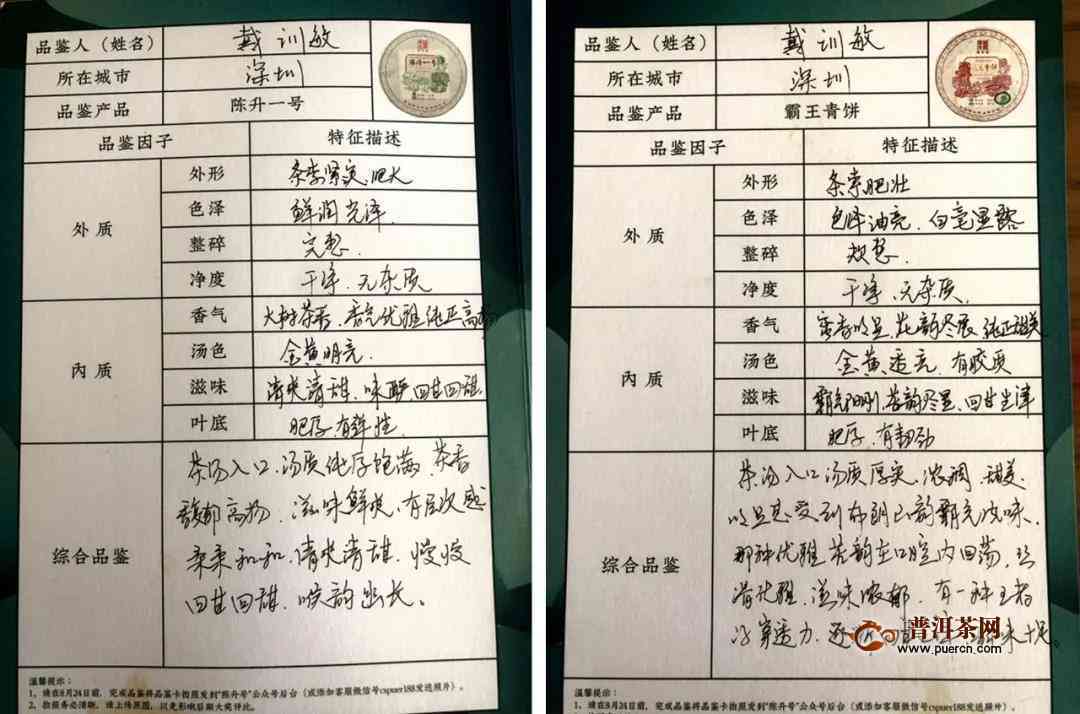 品鉴人（姓名） 戴训敏
所在城市 深圳
品鉴产品 陈升一号
品鉴因子 特征描述
外质
外形 条索紧实、肥大
色泽 鲜润光泽
整碎 完整.
净度 干净、无杂质
内质
香气 大树茶香、香气优雅纯正高扬
汤色 金黄明亮.
滋味 清爽清甜、味酽回甘回甜
叶底 肥厚、有弹性
综合品鉴
茶汤入口、汤质纯厚饱满、茶香
馥郁高扬、滋味鲜爽、有层次感
柔柔和和、清爽清甜、慢慢
回甘回甜、喉韵幽长。
温馨提示：
1、请在8月24日前，完成品鉴将品鉴卡拍照发到“陈升号”公众号后台（或添加客服微信号cspuer188发送照片）。
2、拍照务必清晰，请上传原图，以免影响后期大奖评比。
品鉴人（姓名） 戴训敏
所在城市 深圳
品鉴产品 霸王青饼
品鉴因子 特征描述
外质
外形 条索肥壮
色泽 色泽油亮、白毫显露
整碎 整.
净度 干净、无杂质.
内质
香气 蜜香明显、花韵尽展、纯正甜美
汤色 金黄透亮、有胶质
滋味 霸气阳刚、苦韵尽显、回甘生津
叶底 肥厚、有韧劲
综合品鉴
茶汤入口汤质厚实、浓稠、甜美
明显感受到布朗山韵霸气
那种优雅、苦韵在口腔内回荡
优雅、滋味浓郁、有一种王者
穿透力、还 十足
普洱茶网
www.puercn.com
温馨提示：
1、请在8月24日前，完成品鉴将品鉴卡拍照发到“陈升号”公众号后台（或添加客服微信号cspuer188发送照片）。
2、拍照务必清晰，请上传原图，以免影响后期大奖评比。